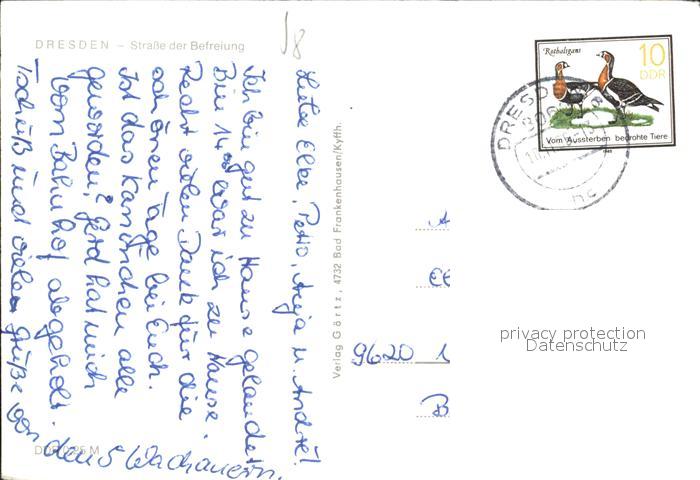 DRESDEN – Straße der Befreiung
Liebe Elke, Petro, Anja u. André!
Ich bin gut zu Hause gelandet
Bin 14⁰⁰ war ich zu Hause.
Recht vielen Dank für die
schönen Tage bei Euch.
Ist das Kaninchen alle
geworden? Gerd hat mich
vom Bahnhof abgeholt.
Tschüß und viele Grüße von
den 5 Wachauern.
DDR 0,25 M
Verlag Görtz, 4732 Bad Frankenhausen/Kyffh.
Rothalsgans
10
DDR
Vom Aussterben bedrohte Tiere
1985
DRESD
806
A
9620 1
B
privacy protection
Datenschutz